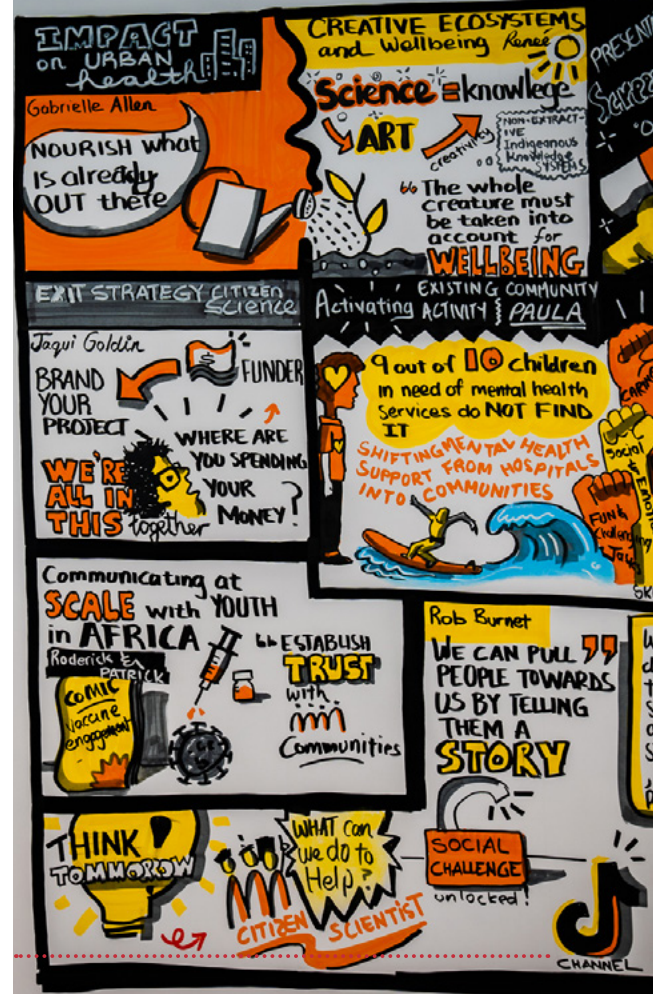 IMPACT
on URBAN
health
Gabrielle Allen
NOURISH what
IS already
OUT there
CREATIVE ECOSYSTEMS
and Wellbeing Renee
Science = knowlege
ART
creativity
NON-EXTRACT-
IVE
Indigeanous
Knowledge
SYSTEMS
“ The whole
creature must
be taken into
account for
WELLBEING
EXIT STRATEGY CITIZEN
Science
Jaqui Goldin
BRAND
YOUR
PROJECT
FUNDER
WHERE ARE
YOU SPENDING
YOUR
MONEY?
WE'RE
ALL IN
THIS together
EXISTING COMMUNITY
Activating ACTIVITY PAULA
9 out of 10 children
in need of mental health
Services do NOT FIND
IT
SHIFTING MENTAL HEALTH
SUPPORT FROM HOSPITALS
INTO COMMUNITIES
Social
FUN &
Challenging
Communicating at
SCALE with YOUTH
in AFRICA
Roderick &
PATRICK
COMIC
vaccine
engagement
“ ESTABLISH
TRUST
with
Communities
Rob Burnet
WE CAN PULL ”
PEOPLE TOWARDS
US BY TELLING
THEM A
STORY
THINK
TOMMORROW
WHAT can
we do to
Help?
CITIZEN SCIENTIST
SOCIAL
CHALLENGE
unlocked!
CHANNEL